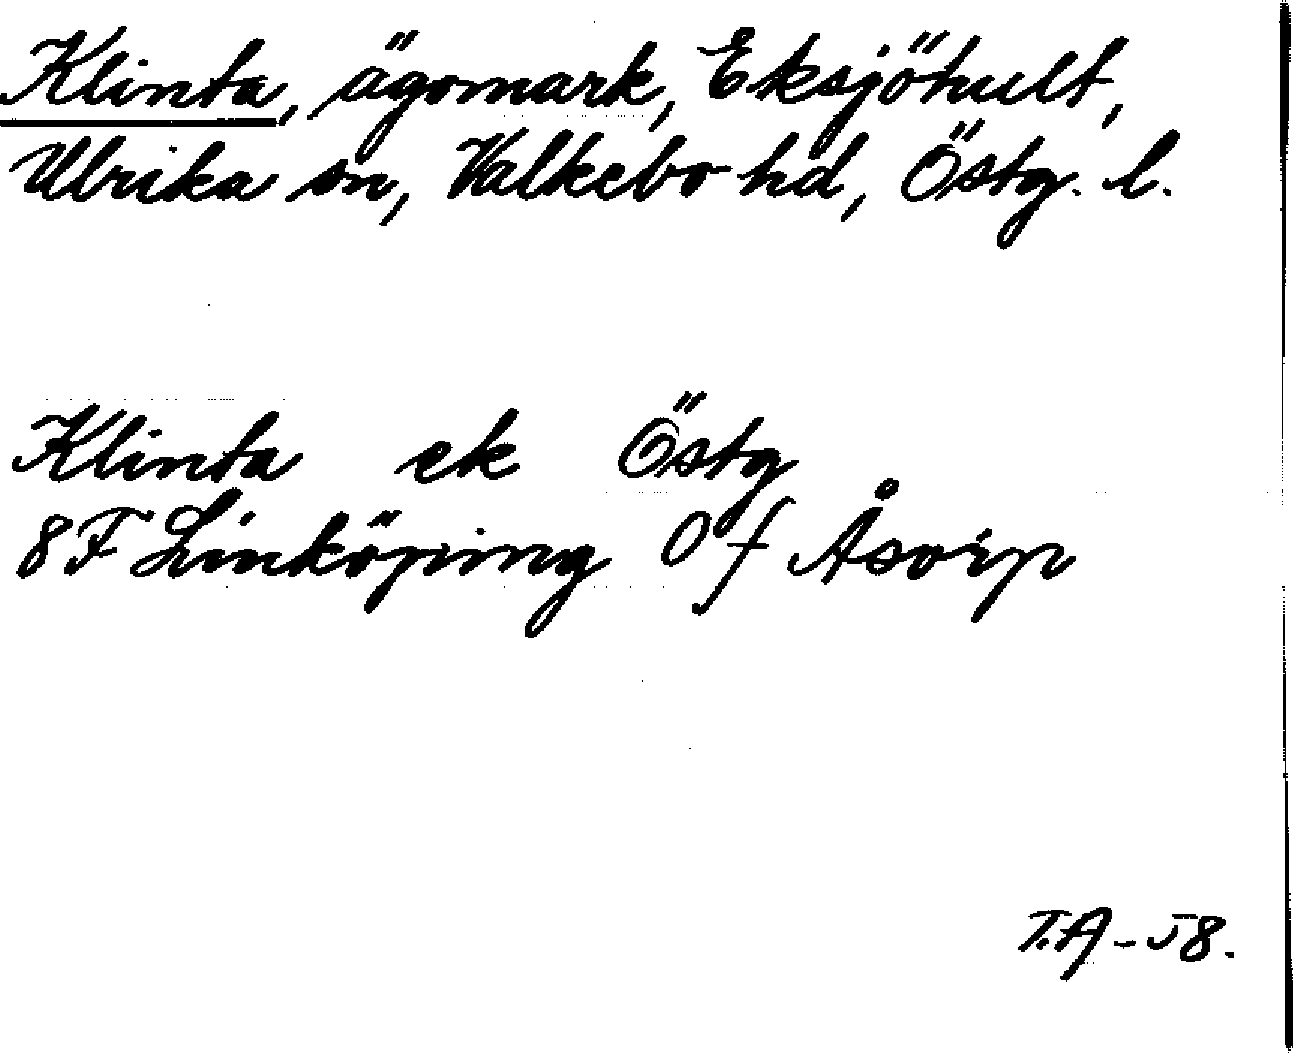 Klinta, ägomark, Eksjöhult,
Ulrika sn, Valkebo hd, Östg. l.
Klinta ek Östg
8F Linköping 0 f Åsvip
T.A-58.